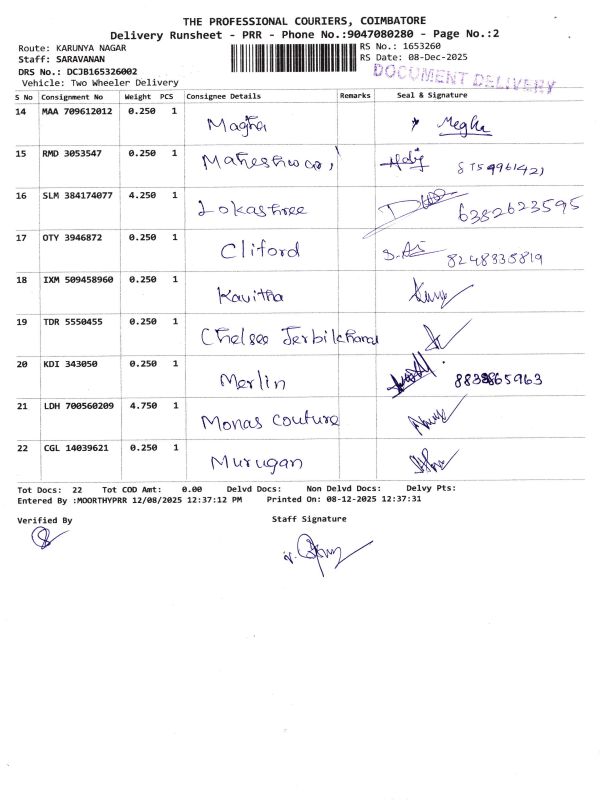 THE PROFESSIONAL COURIERS, COIMBATORE
Delivery Runsheet - PRR - Phone No.:9047080280 - Page No.:2
Route: KARUNYA NAGAR RS No.: 1653260
Staff: SARAVANAN RS Date: 08-Dec-2025
DRS No.: DCJB165326002 DOCUMENT DELIVERY
Vehicle: Two Wheeler Delivery
S No Consignment No Weight PCS Consignee Details Remarks Seal & Signature
14 MAA 709612012 0.250 1 Magha Megha
15 RMD 3053547 0.250 1 Maheshwari
16 SLM 384174077 4.250 1 Lokashree 6382623595
17 OTY 3946872 0.250 1 Cliford 8248335819
18 IXM 509458960 0.250 1 Kavitha
19 TDR 5550455 0.250 1 Chelsea
20 KDI 343050 0.250 1 Merlin
21 LDH 700560209 4.750 1 Monas Couture
22 CGL 14039621 0.250 1 Murugan
Tot Docs: 22 Tot COD Amt: 0.00 Delvd Docs: Non Delvd Docs: Delvy Pts:
Entered By :MOORTHYPRR 12/08/2025 12:37:12 PM Printed On: 08-12-2025 12:37:31
Verified By Staff Signature